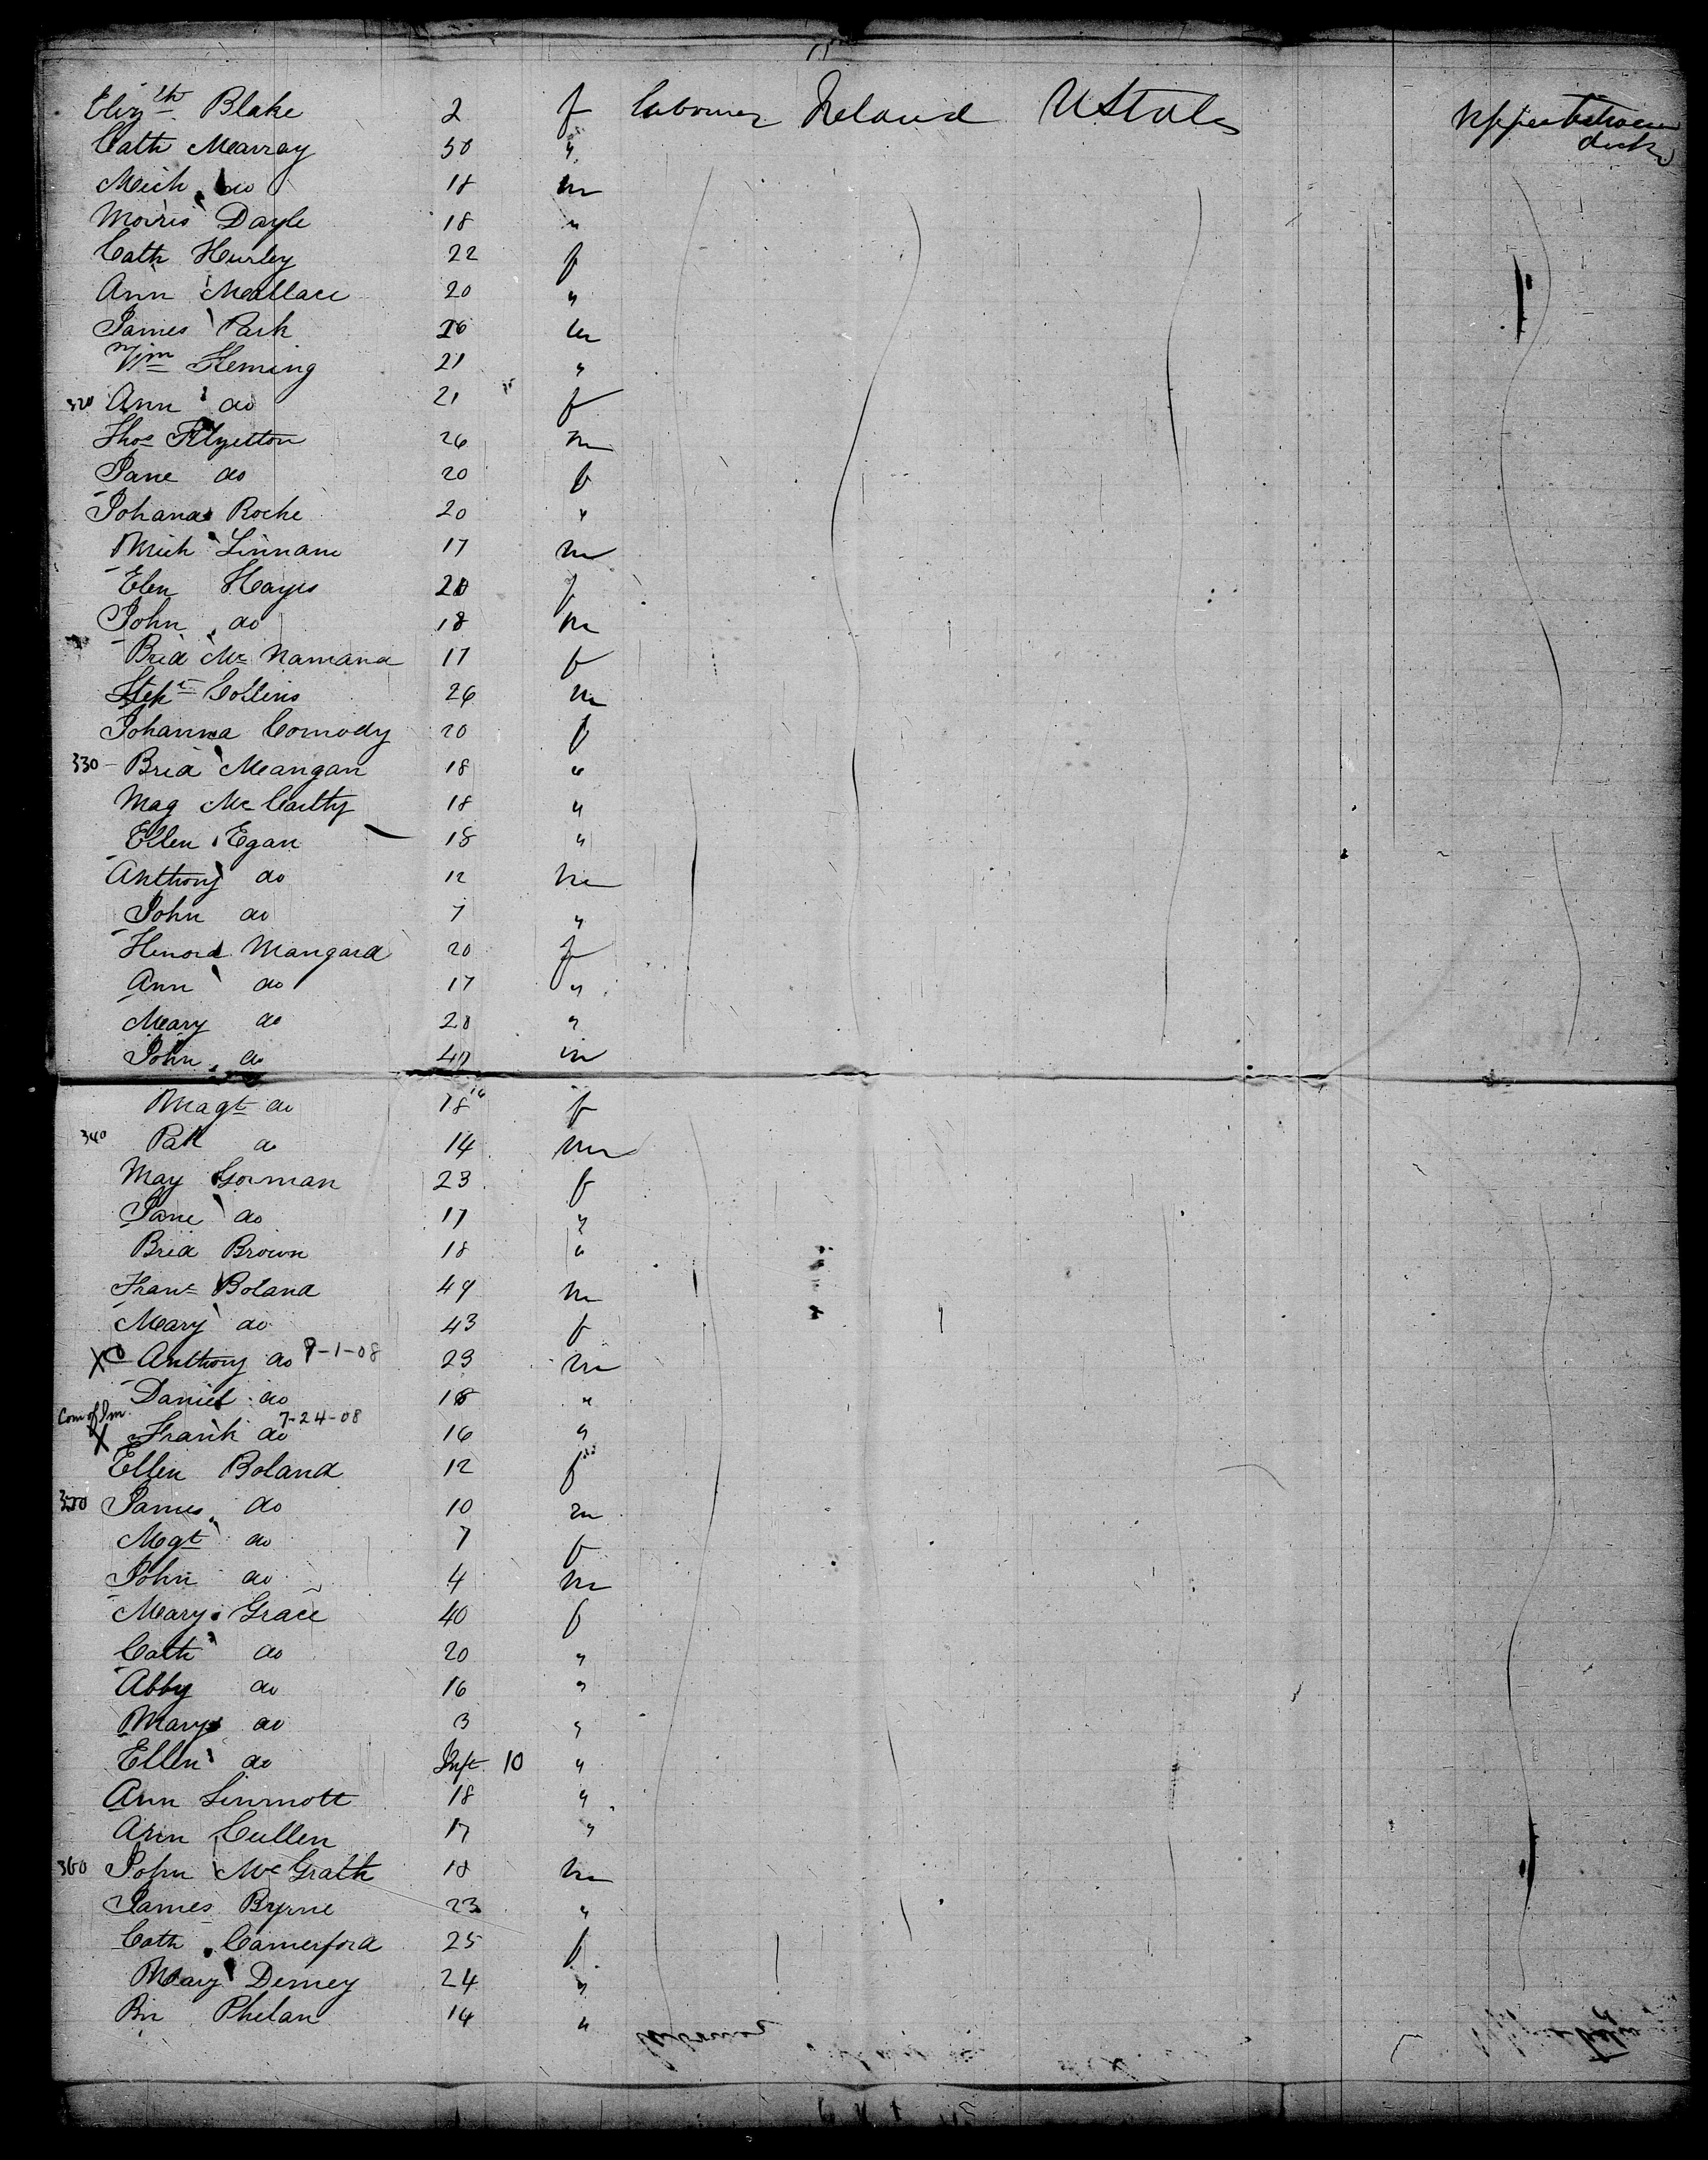 Eliz.th Blake 2 f labourer Ireland UStates Upper between decks
Cath Murray 50 "
Mich do 18 m
Morris Doyle 18 "
Cath Hurley 22 f
Ann Mallace 20 "
James Park 26 m
Wm Fleming 21 "
320 Ann do 21 f
Thos 26 m
Jane do 20 f
Johana Roche 20 "
Mich Linnane 17 m
Elen Hayes 20 f
John do 18 m
Brid Mc Namara 17 f
Step Collins 26 m
Johanna Comody 20 f
330 Brid Mangan 18 "
Mag Mc Carthy 18 "
Ellen Egan 18 "
Anthony do 12 m
John do 7 "
Honord Mangard 20 f
Ann do 17 "
Mary do 20 "
John do 47 m
Magt do 18 f
340 Patt do 14 m
May Gorman 23 f
Jane do 17 "
Brid Brown 18 "
Frans Boland 49 m
Mary do 43 f
X Anthony do 9-1-08 23 m
Daniel do 18 "
Com of Im. 7-24-08
X Frank do 16 "
Ellen Boland 12 f
350 James do 10 m
Mgt do 7 f
John do 4 m
Mary Grace 40 f
Cath do 20 "
Abby do 16 "
Mary do 3 "
Ellen do Inft 10 "
Ann Sinnott 18 "
Ann Cullen 17 "
360 John McGrath 18 m
James Byrne 23 "
Cath Comerford 25 f
Mary Denney 24 "
Bri Phelan 14 "
labourer